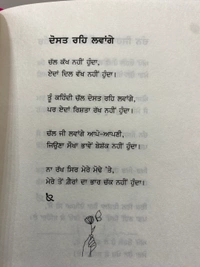 ਦੋਸਤ ਰਹਿ ਲਵਾਂਗੇ
ਚੱਲ ਕੱਖ ਨਹੀਂ ਹੁੰਦਾ,
ਏਦਾਂ ਦਿਲ ਵੱਖ ਨਹੀਂ ਹੁੰਦਾ।
ਤੂੰ ਕਹਿੰਦੀ ਚੱਲ ਦੋਸਤ ਰਹਿ ਲਵਾਂਗੇ,
ਪਰ ਏਦਾਂ ਰਿਸ਼ਤਾ ਰੱਖ ਨਹੀਂ ਹੁੰਦਾ।
ਚੱਲ ਜੀ ਲਵਾਂਗੇ ਆਪੋ-ਆਪਣੀ,
ਜਿਉਣਾ ਸੌਖਾ ਭਾਵੇਂ ਬੇਸ਼ੱਕ ਨਹੀਂ ਹੁੰਦਾ।
ਨਾ ਰੱਖ ਸਿਰ ਮੇਰੇ ਮੋਢੇ 'ਤੇ,
ਮੇਰੇ ਤੋਂ ਗ਼ੈਰਾਂ ਦਾ ਭਾਰ ਚੱਕ ਨਹੀਂ ਹੁੰਦਾ।